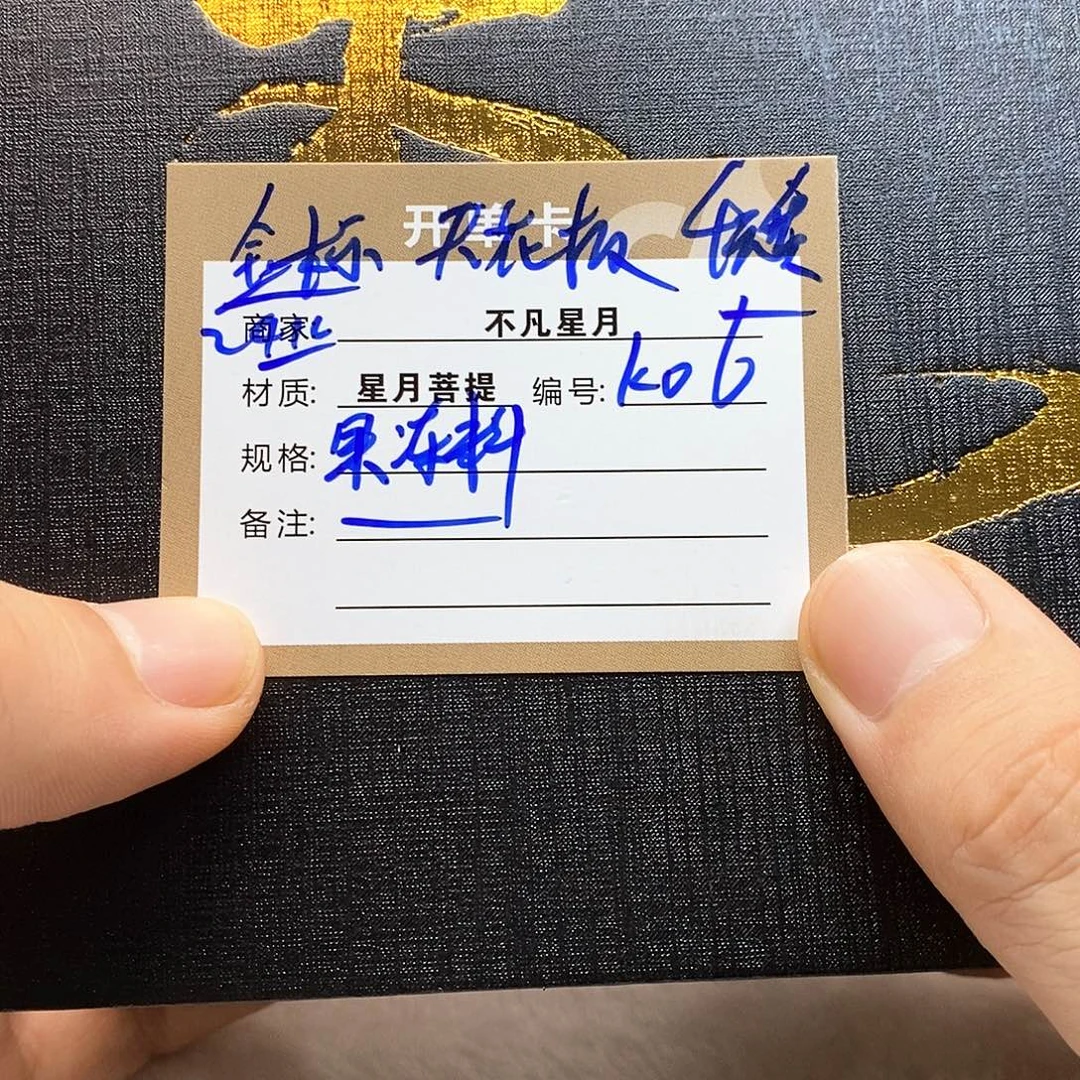 开单卡
金标 天花板
商家: 不凡星月
材质: 星月菩提 编号: k06
规格: 果冻料
备注: